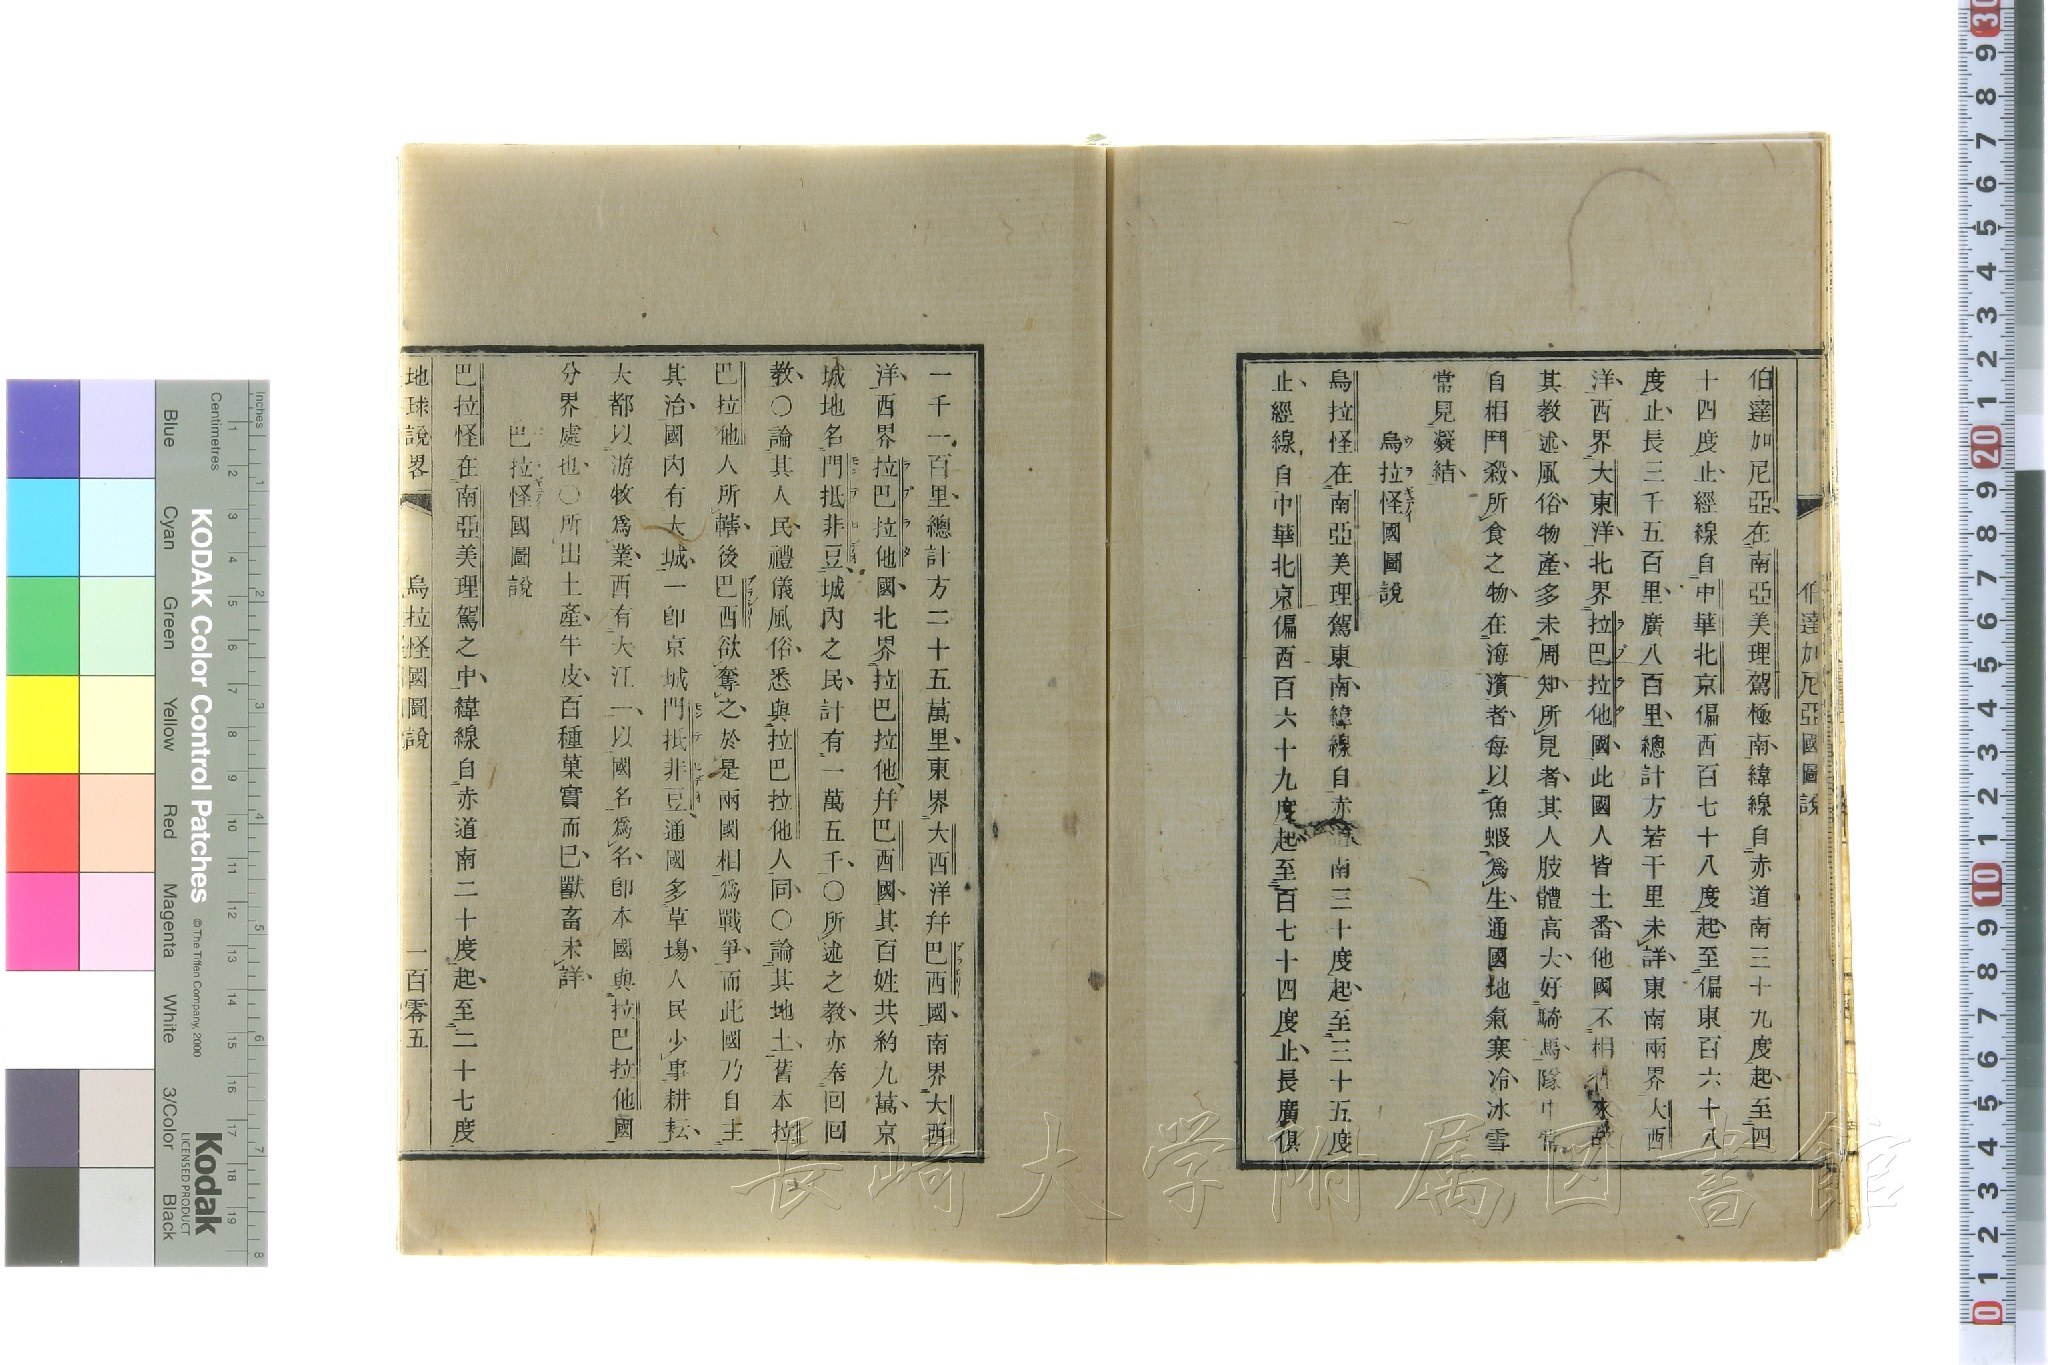 伯達加尼亞國圖說
伯達加尼亞在南亞美理駕極南緯線自赤道南三十九度起至四
十四度止經線自中華北京偏西百七十八度起至偏東百六十八
度止長三千五百里廣八百里總計方若干里未詳東南兩界大西
洋西界大東洋北界拉巴拉他國此國人皆土番他國不相往來故
其教述風俗物產多未周知所見者其人肢體高大好騎馬隊中常
自相鬥殺所食之物在海濱者每以魚蝦為生通國地氣寒冷冰雪
常見凝結
烏拉怪國圖說
烏拉怪在南亞美理駕東南緯線自赤道南三十度起至三十五度
止經線自中華北京偏西百六十九度起至百七十四度止長廣俱
一千一百里總計方二十五萬里東界大西洋幷巴西國南界大西
洋西界拉巴拉他國北界拉巴拉他幷巴西國其百姓共約九萬京
城地名門抵非豆城內之民計有一萬五千〇所述之教亦奉囘囘
教〇論其人民禮儀風俗悉與拉巴拉他人同〇論其地土舊本拉
巴拉他人所轄後巴西欲奪之於是兩國相爲戰爭而此國乃自主
其治國內有大城一卽京城門抵非豆通國多草場人民少事耕耘
大都以游牧爲業西有大江一以國名爲名卽本國與拉巴拉他國
分界處也〇所出土產牛皮百種菓實而巳獸畜未詳
巴拉怪國圖說
巴拉怪在南亞美理駕之中緯線自赤道南二十度起至二十七度
地球說畧
烏拉怪國圖說
一百零五
長崎大学附属図書館
KODAK Color Control Patches
© The Tiffen Company, 2000
Kodak
LICENSED PRODUCT
Inches
Centimetres
Blue
Cyan
Green
Yellow
Red
Magenta
White
3/Color
Black